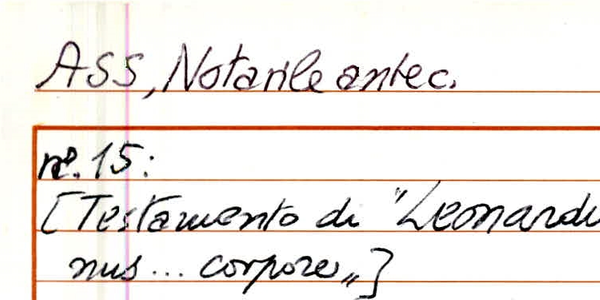 ASS, Notarile antec.
nº. 15:
[Testamento di "Leonardu
nus... corpore„]